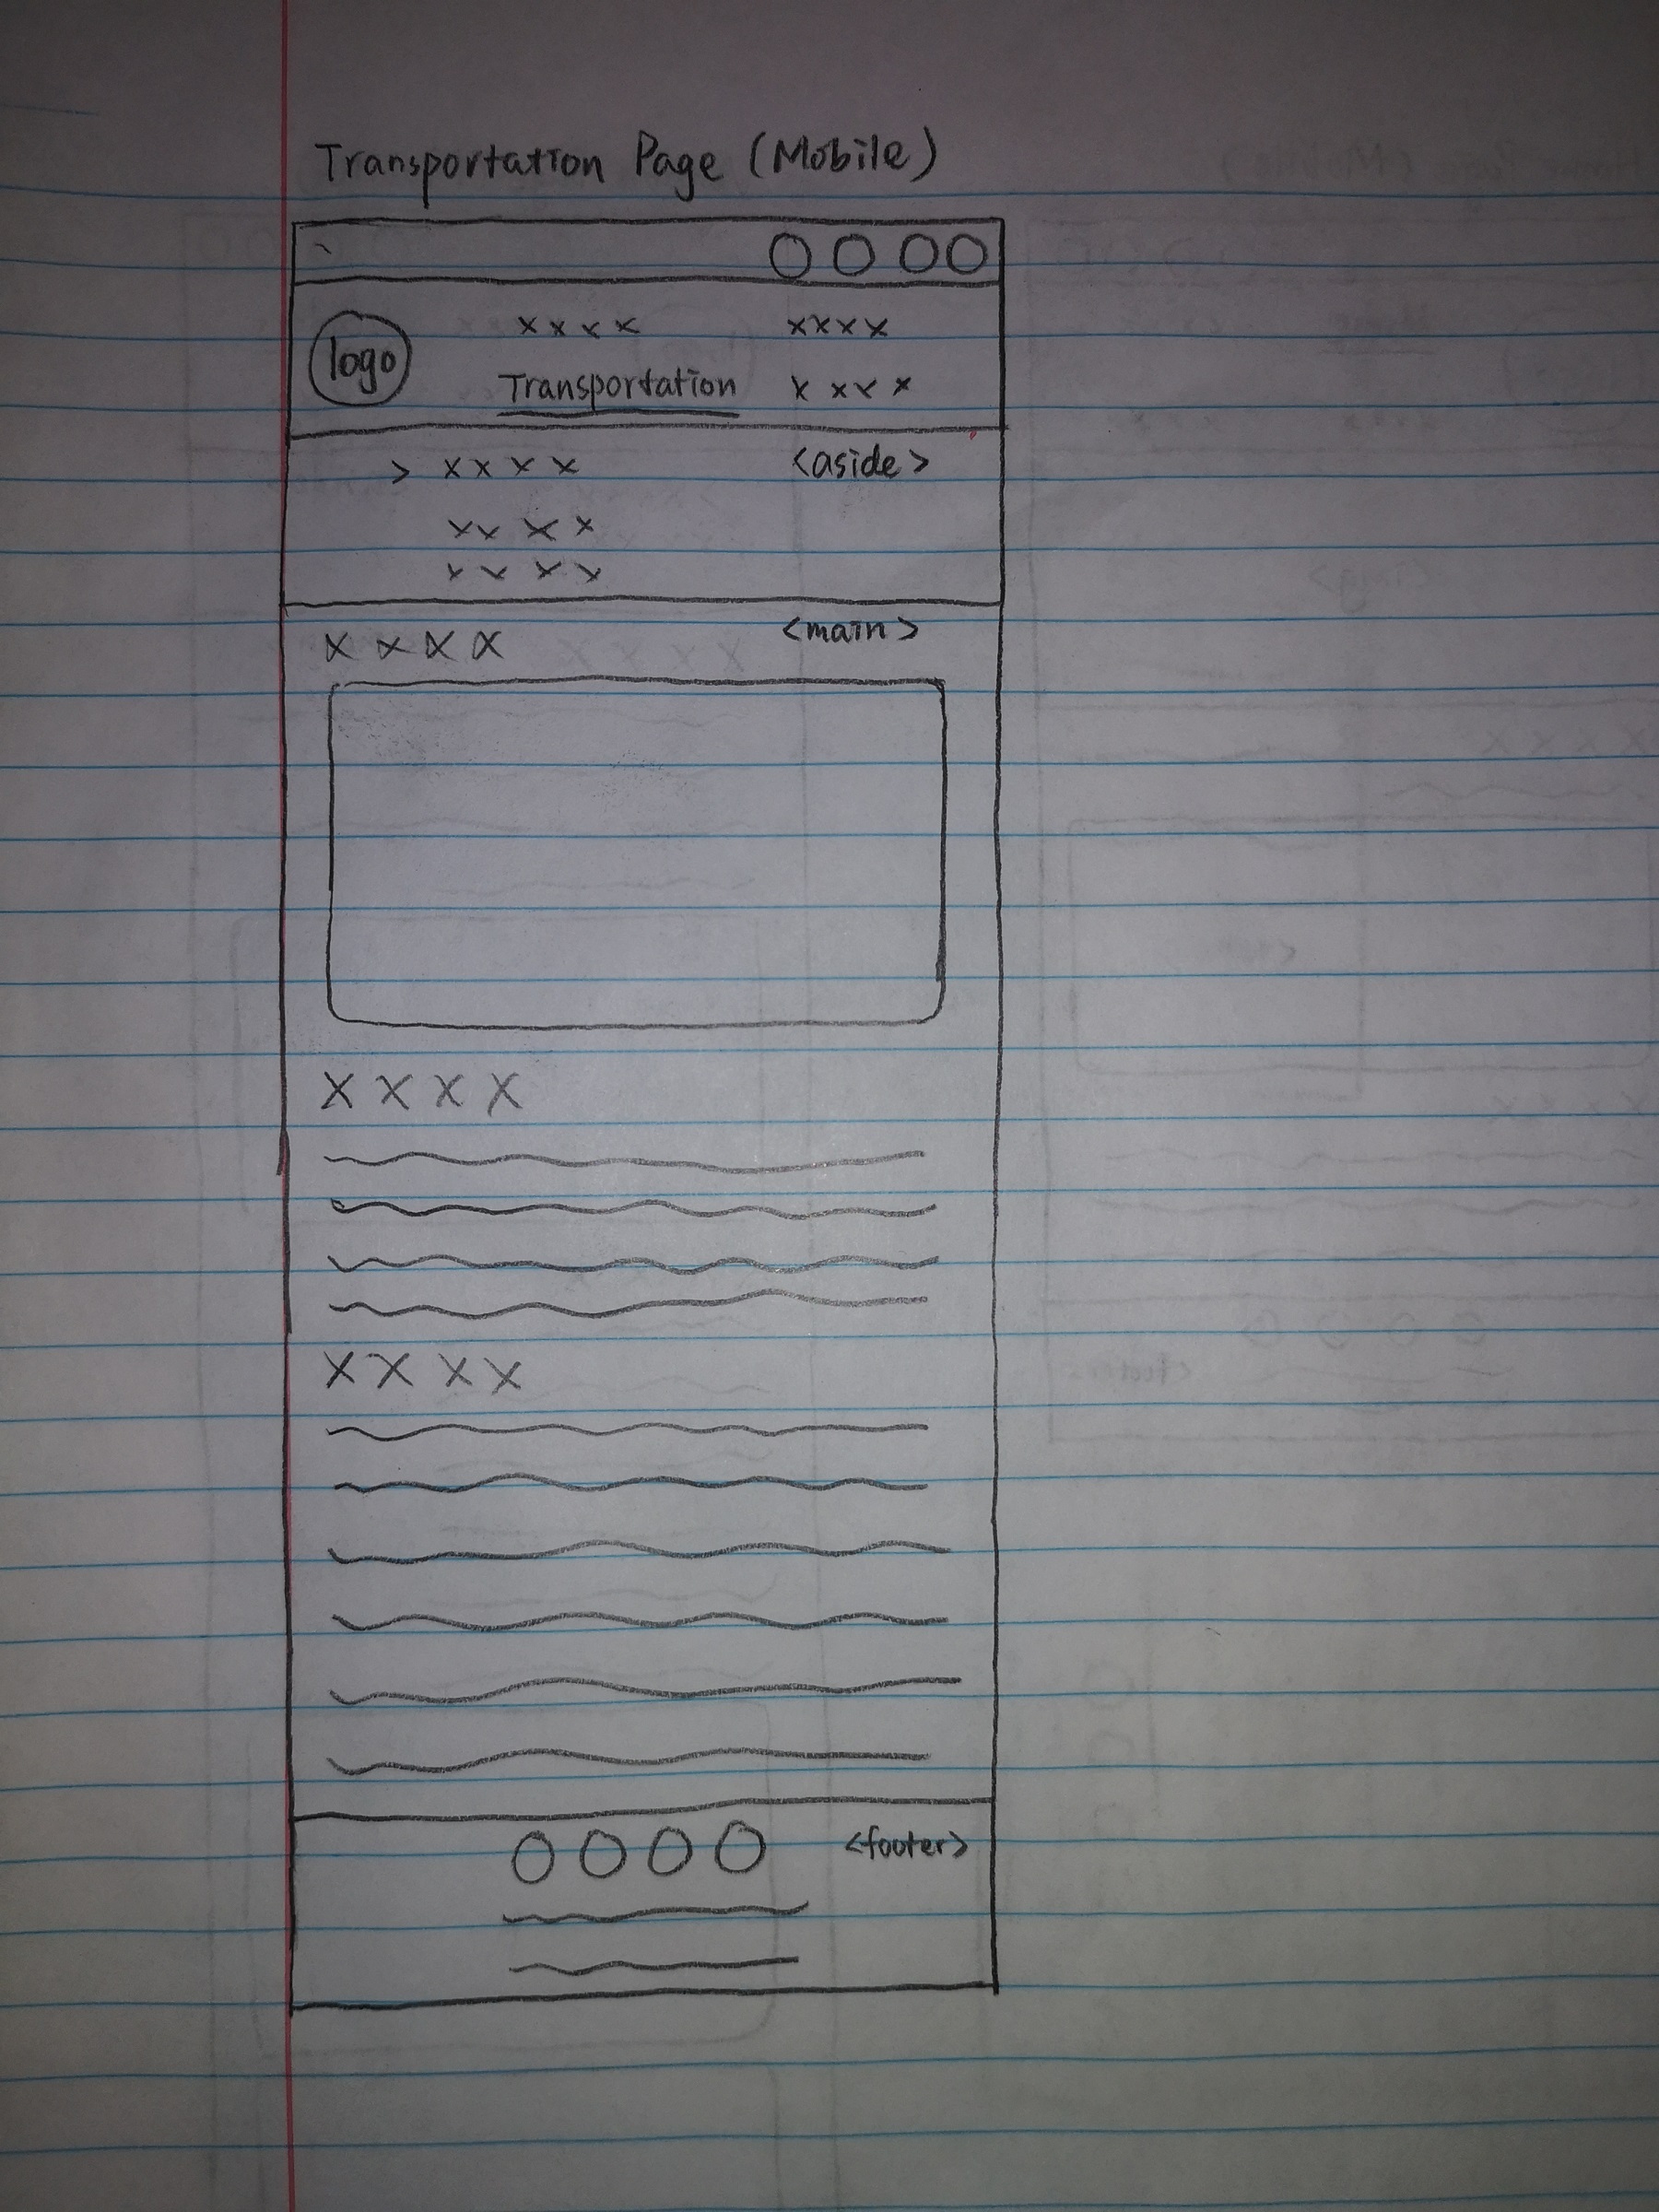 Transportation Page (Mobile)
xxxx xxxx
logo
Transportation xxxx
> xxxx <aside>
xxxx
xxxx
xxxx <main>
xxxx
xxxx
<footer>